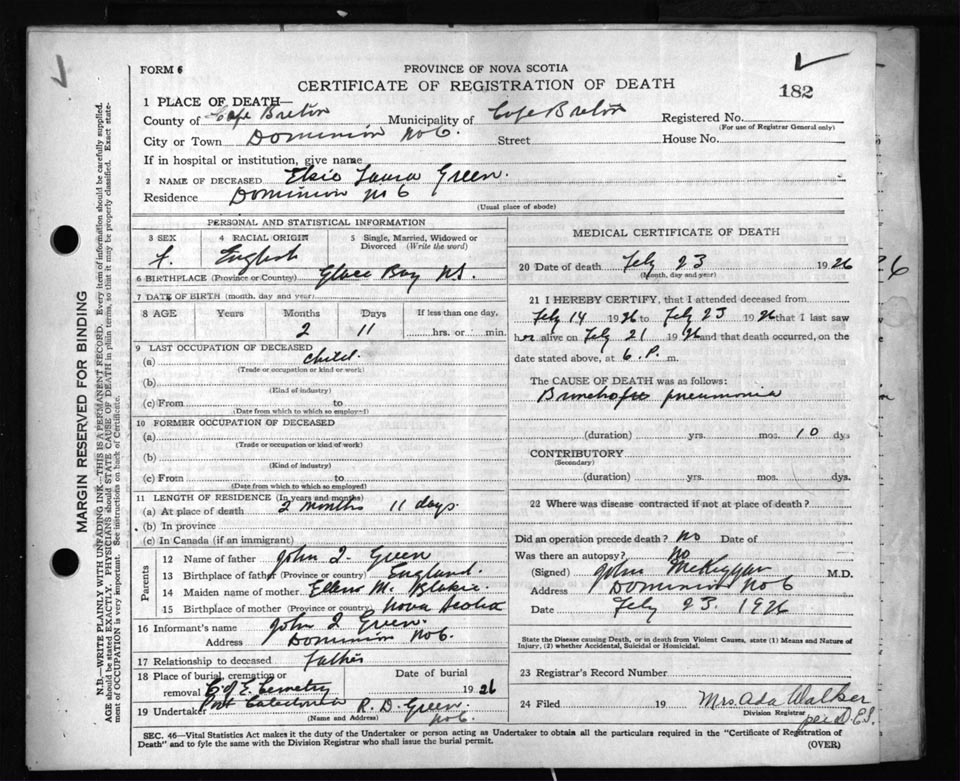 FORM 6
PROVINCE OF NOVA SCOTIA
CERTIFICATE OF REGISTRATION OF DEATH
182
1 PLACE OF DEATH—
County of Cape Breton Municipality of Cape Breton Registered No.
(For use of Registrar General only)
City or Town Dominion No 6. Street House No.
If in hospital or institution, give name
2 NAME OF DECEASED Elsie Laura Green.
Residence Dominion No 6
(Usual place of abode)
PERSONAL AND STATISTICAL INFORMATION
3 SEX 4 RACIAL ORIGIN 5 Single, Married, Widowed or Divorced (Write the word)
F. English
6 BIRTHPLACE (Province or Country) Glace Bay N.S.
7 DATE OF BIRTH (month, day and year)
8 AGE Years Months Days If less than one day,
2 11 hrs. or min.
9 LAST OCCUPATION OF DECEASED
(a) child.
(Trade or occupation or kind or work)
(b)
(Kind of industry)
(c) From to
(Date from which to which so employed)
10 FORMER OCCUPATION OF DECEASED
(a)
(Trade or occupation or kind of work)
(b)
(Kind of industry)
(c) From to
(Date from which to which so employed)
11 LENGTH OF RESIDENCE (In years and months)
(a) At place of death 2 months 11 days.
(b) In province
(c) In Canada (if an immigrant)
Parents
12 Name of father John Green
13 Birthplace of father (Province or country) England.
14 Maiden name of mother Ellen M. Blakie.
15 Birthplace of mother (Province or country) Nova Scotia
16 Informant's name John Green.
Address Dominion No 6.
17 Relationship to deceased father
18 Place of burial, cremation or removal C of E. Cemetry Date of burial 1926
Port Caledonia
19 Undertaker R. D. Green.
(Name and Address) No 6.
MEDICAL CERTIFICATE OF DEATH
20 Date of death Feby 23 1926
(Month, day and year)
21 I HEREBY CERTIFY, that I attended deceased from
Feby 14 1926 to Feby 23 1926 that I last saw
her alive on Feby 21 1926 and that death occurred, on the
date stated above, at 6. P. m.
The CAUSE OF DEATH was as follows:
pneumonia
(duration) yrs. mos. 10 dys
CONTRIBUTORY
(Secondary)
(duration) yrs. mos. dys.
22 Where was disease contracted if not at place of death?
Did an operation precede death? No Date of
Was there an autopsy? No
(Signed) John McKiggan M.D.
Address Dominion No 6
Date Feby 23. 1926
State the Disease causing Death, or in death from Violent Causes, state (1) Means and Nature of
Injury, (2) whether Accidental, Suicidal or Homicidal.
23 Registrar's Record Number
24 Filed 19 Mrs. Ada Walker
Division Registrar
per D.E.S.
SEC. 46—Vital Statistics Act makes it the duty of the Undertaker or person acting as Undertaker to obtain all the particulars required in the "Certificate of Registration of
Death" and to fyle the same with the Division Registrar who shall issue the burial permit. (OVER)
MARGIN RESERVED FOR BINDING
N.B.—WRITE PLAINLY WITH UNFADING INK—THIS IS A PERMANENT RECORD. Every item of information should be carefully supplied.
AGE should be stated EXACTLY. PHYSICIANS should STATE CAUSE OF DEATH in plain terms, so that it may be properly classified. Exact state-
ment of OCCUPATION is very important. See instructions on back of Certificate.